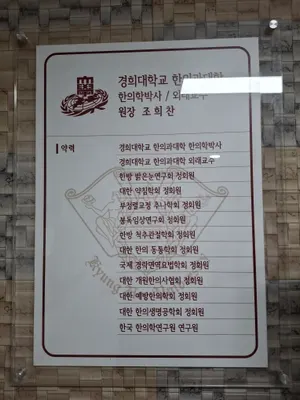 경희대학교 한의과대학
한의학박사 / 외래교수
원장 조희찬
약력
경희대학교 한의과대학 한의학박사
경희대학교 한의과대학 외래교수
한방 밝은눈연구회 정회원
대한 약침학회 정회원
부정렬교정 추나학회 정회원
봉독임상연구회 정회원
한방 척추관절학회 정회원
대한 한의 동통학회 정회원
국제 경락면역요법학회 정회원
대한 개원한의사협회 정회원
대한 예방한의학회 정회원
대한 한의생명공학회 정회원
한국 한의학연구원 연구원